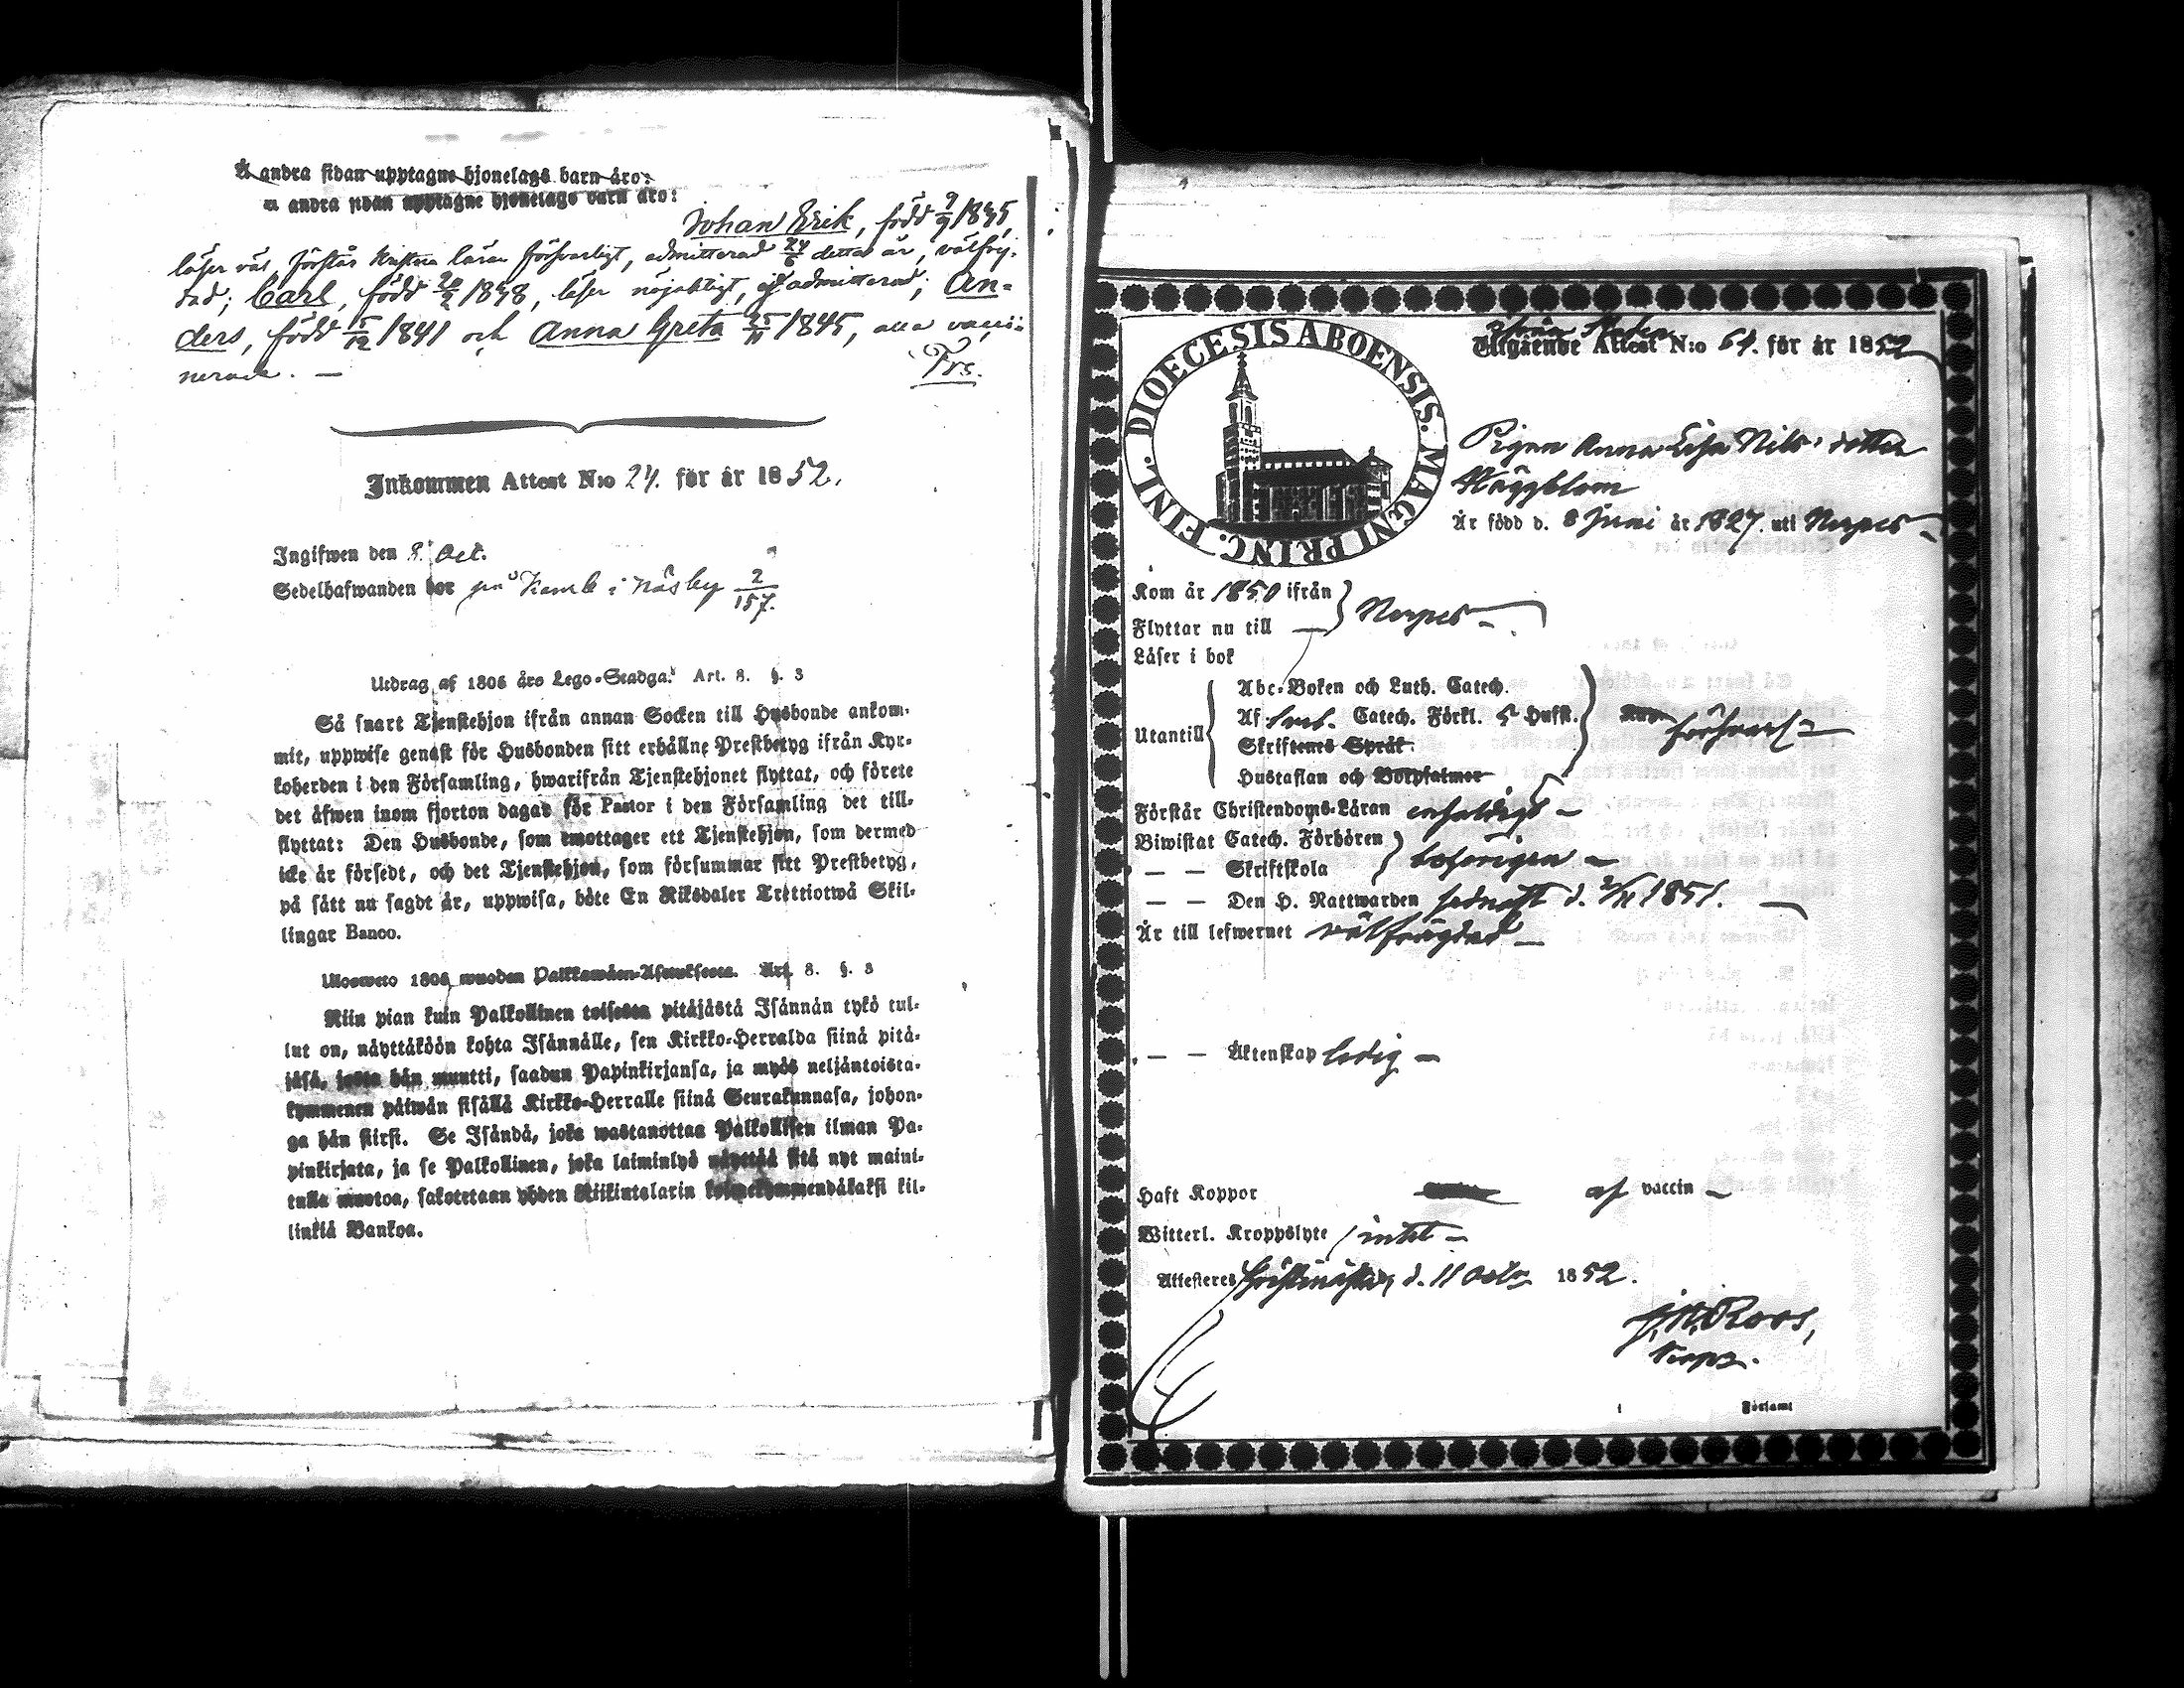 Å andra sidan upptagne hjonelags barn äro:
å andra sidan upptagne hjonelags barn äro:
Johan Erik, född 9/9 1835,
läser väl, förstår kristna läran försvarligt, admitterad 24/6 detta år, välfrej-
dad; Carl, född 20/2 1838, läser nöjaktigt, ej admitterad; An-
ders, född 15/12 1841 och Anna Greta 25/11 1845, alla vacci-
nerade. —
Inkommen Attest N:o 24. för år 1852.
Ingifwen den 8. Oct.
Sedelhafwanden bor på i Näsby 2/157.
Utdrag af 1805 års Lego-Stadga. Art. 8. §. 3
Så snart Tjenstehjon ifrån annan Socken till Husbonde ankom-
mit, uppwise genast för Husbonden sitt erhållne Prestbetyg ifrån Kyr-
koherden i den Församling, hwarifrån Tjenstehjonet flyttat, och förete
det äfwen inom fjorton dagar för Pastor i den Församling det till-
flyttat: Den Husbonde, som emottager ett Tjenstehjon, som dermed
icke är försedt, och det Tjenstehjon, som försummar sitt Prestbetyg,
på sätt nu sagdt är, uppwisa, böte En Riksdaler Trettiotwå Skil-
lingar Banco.
Ulosweto 1805 wuoden Palkkawäen-Asetuksesta. Art. 8. §. 3
Niin pian kuin Palkollinen toisesta pitäjästä Isännän tykö tul-
lut on, näyttäköön kohta Isännälle, sen Kirkko-Herralda siinä pitä-
jäsä, josta hän muutti, saadun Papinkirjansa, ja myös neljäntoista-
kymmenen päiwän sisällä Kirkko-Herralle siinä Seurakunnasa, johon-
ga hän siirsi. Se Isändä, joka wastanottaa Palkollisen ilman Pa-
pinkirjata, ja se Palkollinen, joka laiminlyö näyttää sitä nyt maini-
tulla muotoa, sakotetaan yhden Riikintalarin kolmekymmendäkaksi kil-
linkiä Bankoa.
DIOECESIS ABOENSIS. MAGNI PRINC. FINL.
Utgående Attest N:o 64. för år 1852
Pigan Anna Lisa Nils dotter
Häggblom
Är född d. 8 Juni år 1827. uti Nerpes
Kom år 1850 ifrån
Flyttar nu till — Nerpes
Läser i bok
Utantill
Abc-Boken och Luth. Catech.
Af Catech. Förkl. 5 Hufst.
Skriftenes Språk försvarl.
Hustaflan och Botpsalmer
Förstår Christendoms-Läran enfaldigt —
Biwistat Catech. Förhören
— — Skriftskola
— — Den H. Nattwarden sednast d. 2/11 1851.
Är till lefwernet välfrägdad —
— — Äktenskap ledig —
Haft Koppor af vaccin —
Witterl. Kroppslyte intet —
Attesteres Christinæstad d. 11 Octbr 1852.
J. H. Roos,
Församl